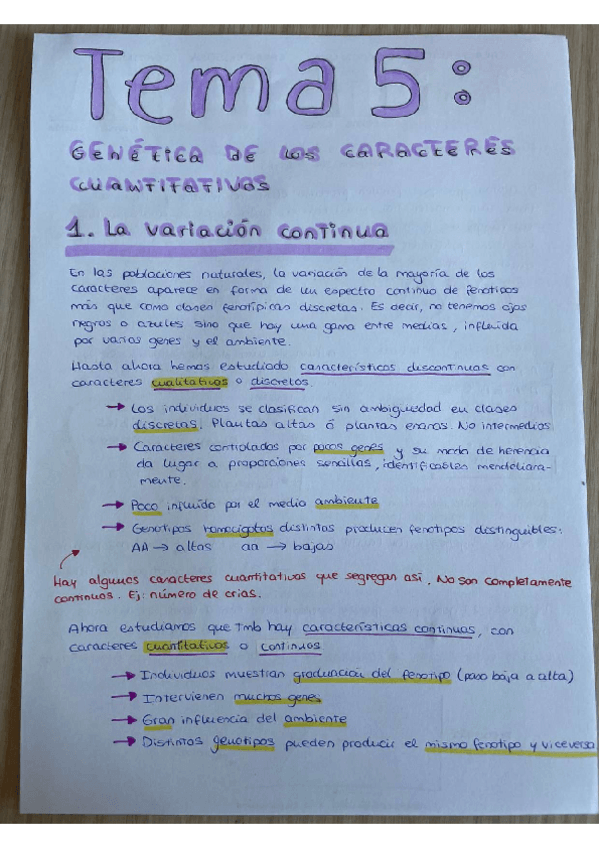 Tema 5:
GENÉTICA DE LOS CARACTERES
CUANTITATIVOS
1. La variación continua
En las poblaciones naturales, la variación de la mayoría de los
caracteres aparece en forma de un espectro continuo de fenotipos
más que como clases fenotípicas discretas. Es decir, no tenemos ojos
negros o azules sino que hay una gama entre medias, influida
por varios genes y el ambiente.
Hasta ahora hemos estudiado características discontinuas con
caracteres cualitativos o discretos.
→ Los individuos se clasifican sin ambigüedad en clases
discretas. Plantas altas ó plantas enanas. No intermedios
→ Caracteres controlados por pocos genes y su modo de herencia
da lugar a proporciones sencillas, identificables mendeliana-
mente.
→ Poco influido por el medio ambiente
→ Genotipos homocigotos distintos producen fenotipos distinguibles:
AA → altas aa → bajas
Hay algunos caracteres cuantitativos que segregan así. No son completamente
continuos. Ej: número de crias.
Ahora estudiamos que Tmb hay características continuas, con
caracteres cuantitativos o continuos
→ Individuos muestran graduación del fenotipo (paso baja a alta)
→ Intervienen muchos genes
→ Gran influencia del ambiente
→ Distintos genotipos pueden producir el mismo fenotipo y viceversa